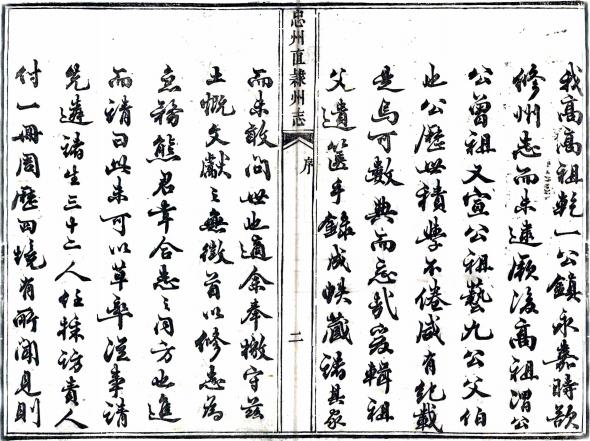 我高高祖乾一公鎮永嘉時欲
修州志而未逮厥後高祖渭公
公曾祖又宣公祖藝九公父伯
也公歷世積學不倦咸有紀載
是烏可數典而忘哉爰輯祖
父遺箧手錄成帙藏諸其家
忠州直隸州志
序
二
而未敢問世也適余奉檄守茲
土慨文獻之無徵首以修志為
急務熊君幸合志之同方也進
而請曰此未可以草率從事請
先遴諸生三十二人任採訪責人
付一冊周歷四境有所聞見則